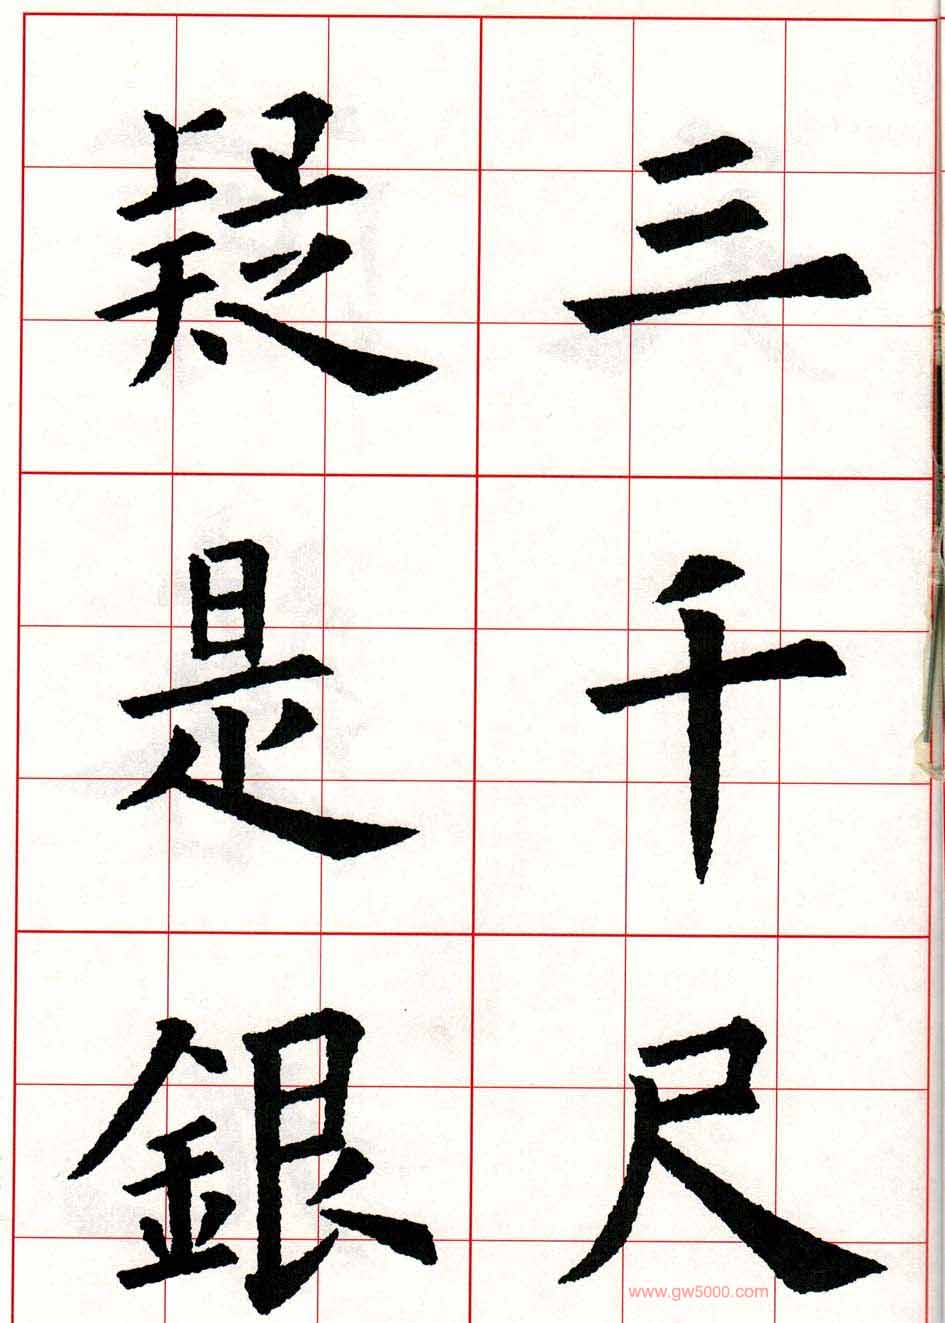 三千尺
疑是銀
www.gw5000.com